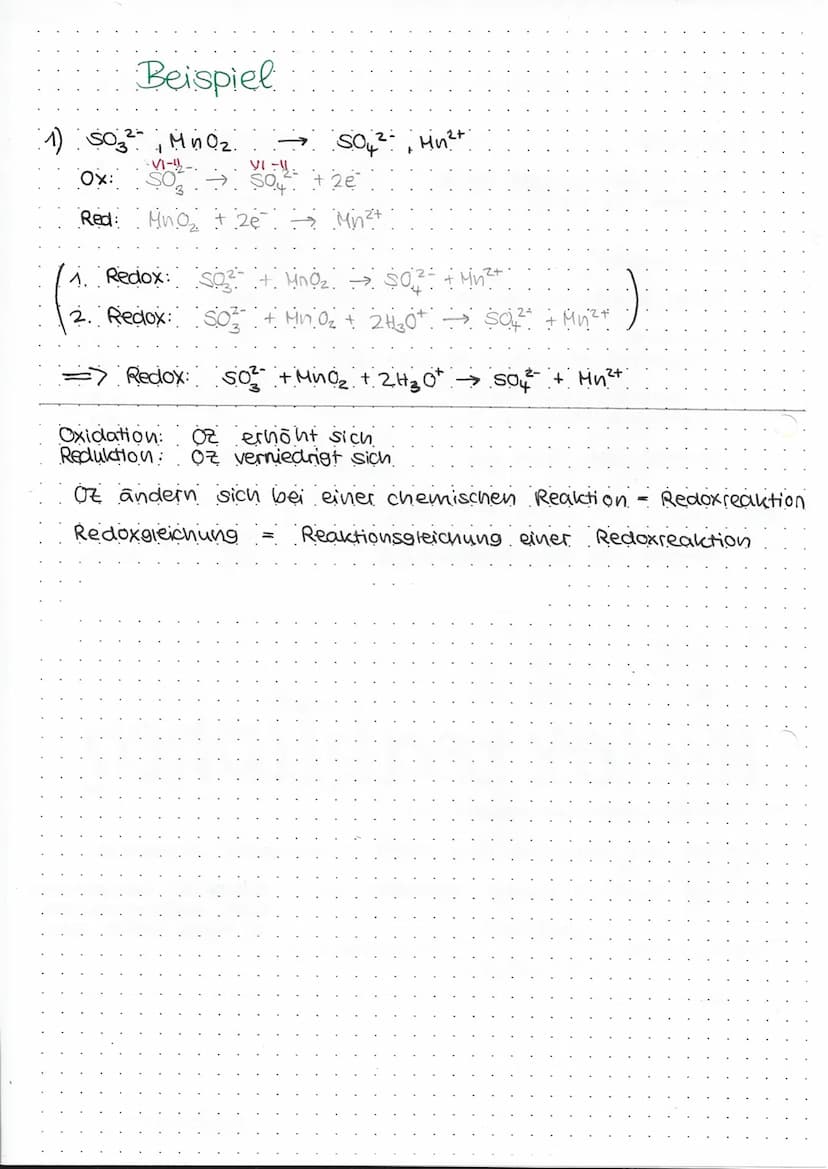 Beispiel
1) SO₃²⁻, MnO₂ → SO₄²⁻, Mn²⁺
VI -II VI -II
Ox: SO₃²⁻ → SO₄²⁻ + 2e⁻
Red: MnO₂ + 2e⁻ → Mn²⁺
1. Redox: SO₃²⁻ + MnO₂ → SO₄²⁻ + Mn²⁺
2. Redox: SO₃²⁻ + MnO₂ + 2H₃O⁺ → SO₄²⁻ + Mn²⁺
=> Redox: SO₃²⁻ + MnO₂ + 2H₃O⁺ → SO₄²⁻ + Mn²⁺
Oxidation: OZ erhöht sich
Reduktion: OZ verniedrigt sich
OZ ändern sich bei einer chemischen Reaktion = Redoxreaktion
Redoxgleichung = Reaktionsgleichung einer Redoxreaktion